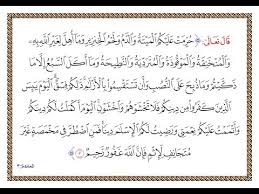 قَالَ تَعَالَىٰ: ﴿حُرِّمَتْ عَلَيْكُمُ ٱلْمَيْتَةُ وَٱلدَّمُ وَلَحْمُ ٱلْخِنزِيرِ وَمَآ أُهِلَّ لِغَيْرِ ٱللَّهِ بِهِۦ
وَٱلْمُنْخَنِقَةُ وَٱلْمَوْقُوذَةُ وَٱلْمُتَرَدِّيَةُ وَٱلنَّطِيحَةُ وَمَآ أَكَلَ ٱلسَّبُعُ إِلَّا مَا
ذَكَّيْتُمْ وَمَا ذُبِحَ عَلَى ٱلنُّصُبِ وَأَن تَسْتَقْسِمُوا۟ بِٱلْأَزْلَٰمِ ذَٰلِكُمْ فِسْقٌ ٱلْيَوْمَ يَئِسَ
ٱلَّذِينَ كَفَرُوا۟ مِن دِينِكُمْ فَلَا تَخْشَوْهُمْ وَٱخْشَوْنِ ٱلْيَوْمَ أَكْمَلْتُ لَكُمْ دِينَكُمْ
وَأَتْمَمْتُ عَلَيْكُمْ نِعْمَتِى وَرَضِيتُ لَكُمُ ٱلْإِسْلَٰمَ دِينًا فَمَنِ ٱضْطُرَّ فِى مَخْمَصَةٍ غَيْرَ
مُتَجَانِفٍ لِّإِثْمٍ فَإِنَّ ٱللَّهَ غَفُورٌ رَّحِيمٌ ٣﴾